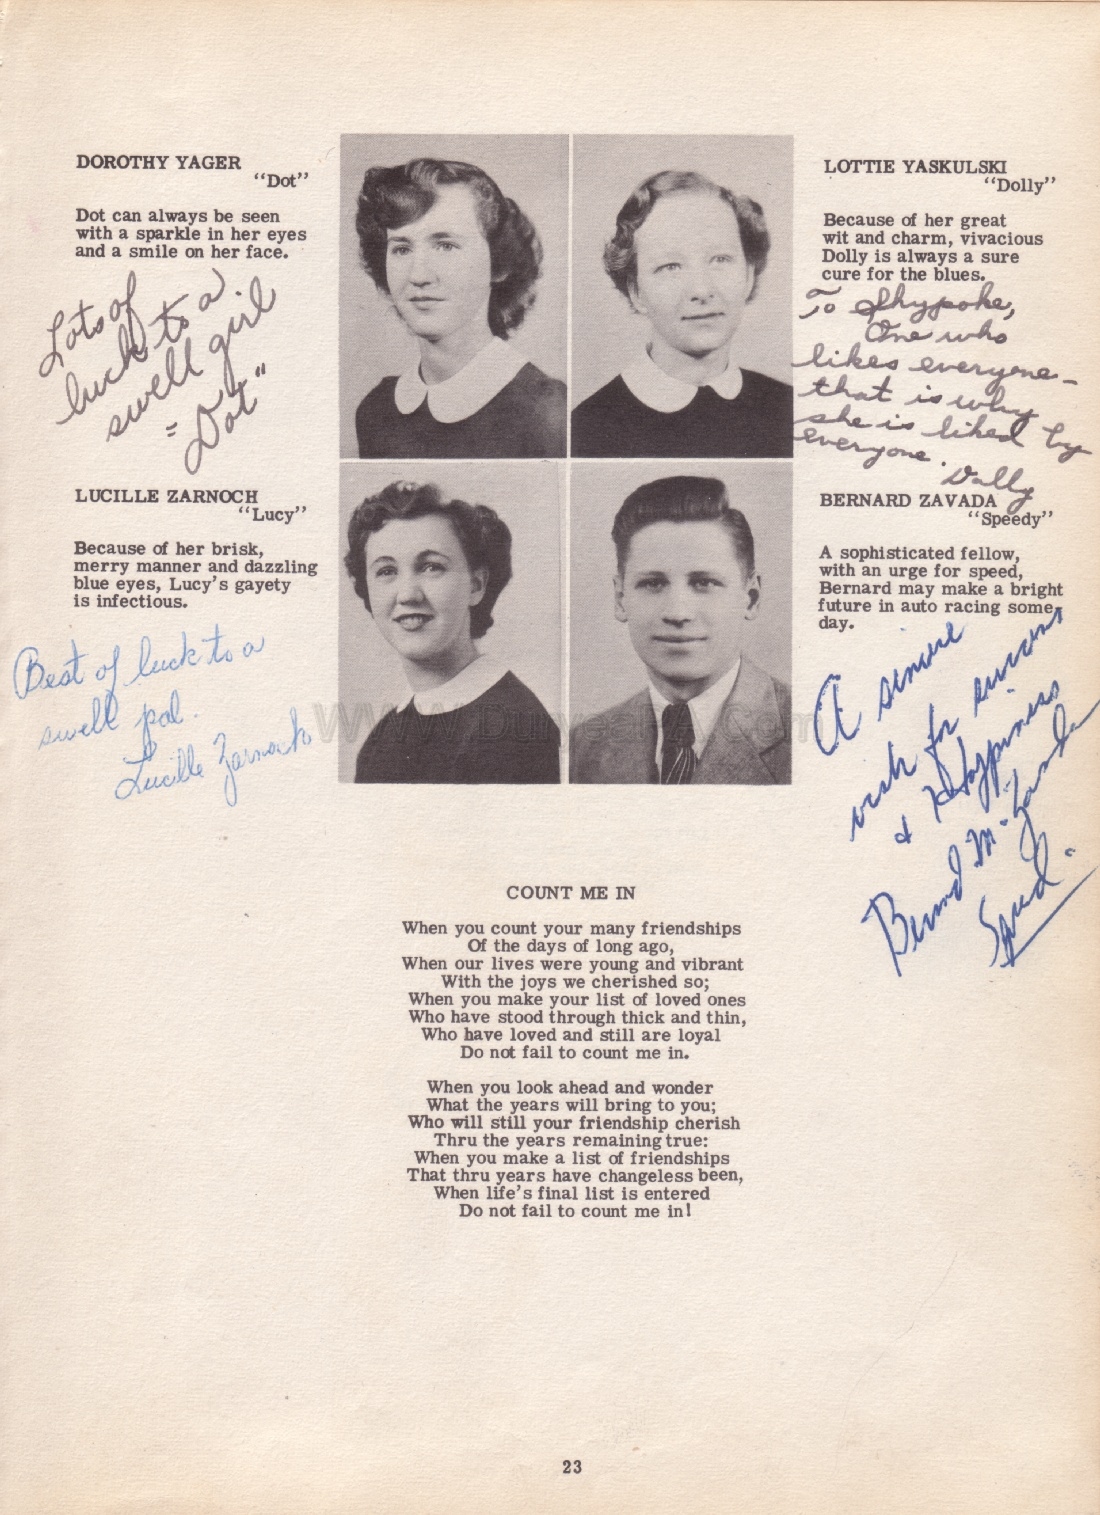 DOROTHY YAGER
"Dot"
Dot can always be seen
with a sparkle in her eyes
and a smile on her face.
Lots of
luck to a
swell girl
"Dot"
LOTTIE YASKULSKI
"Dolly"
Because of her great
wit and charm, vivacious
Dolly is always a sure
cure for the blues.
To Shypoke,
One who
likes everyone -
that is why
she is liked by
everyone.
Dolly
LUCILLE ZARNOCH
"Lucy"
Because of her brisk,
merry manner and dazzling
blue eyes, Lucy's gayety
is infectious.
Best of luck to a
swell pal.
Lucille Zarnoch
BERNARD ZAVADA
"Speedy"
A sophisticated fellow,
with an urge for speed,
Bernard may make a bright
future in auto racing some
day.
A sincere
wish for success
& Happiness
Bernard M. Zavada
WWW.DuryeaPA.Com
COUNT ME IN
When you count your many friendships
Of the days of long ago,
When our lives were young and vibrant
With the joys we cherished so;
When you make your list of loved ones
Who have stood through thick and thin,
Who have loved and still are loyal
Do not fail to count me in.
When you look ahead and wonder
What the years will bring to you;
Who will still your friendship cherish
Thru the years remaining true:
When you make a list of friendships
That thru years have changeless been,
When life's final list is entered
Do not fail to count me in!
23